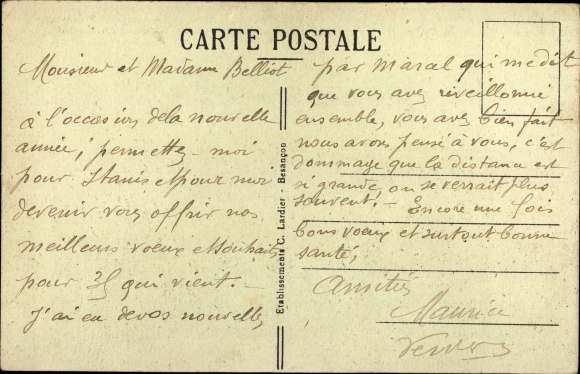 CARTE POSTALE
Monsieur et Madame Belliot
à l'occasion de la nouvelle
année, permettez-moi
pour Stanis et pour moi
de venir vous offrir nos
meilleurs voeux et souhaits
pour 35 qui vient.-
J'ai eu de vos nouvelles
Etablissements C. Lardier - Besançon
par Marcal qui me dit
que vous avez réveillonné
ensemble, vous avez bien fait
nous avons pensé à vous, c'est
dommage que la distance est
si grande, on se verrait plus
souvent.- Encore une fois
bons voeux et surtout bonne
santé,
Amitiés
Maurice